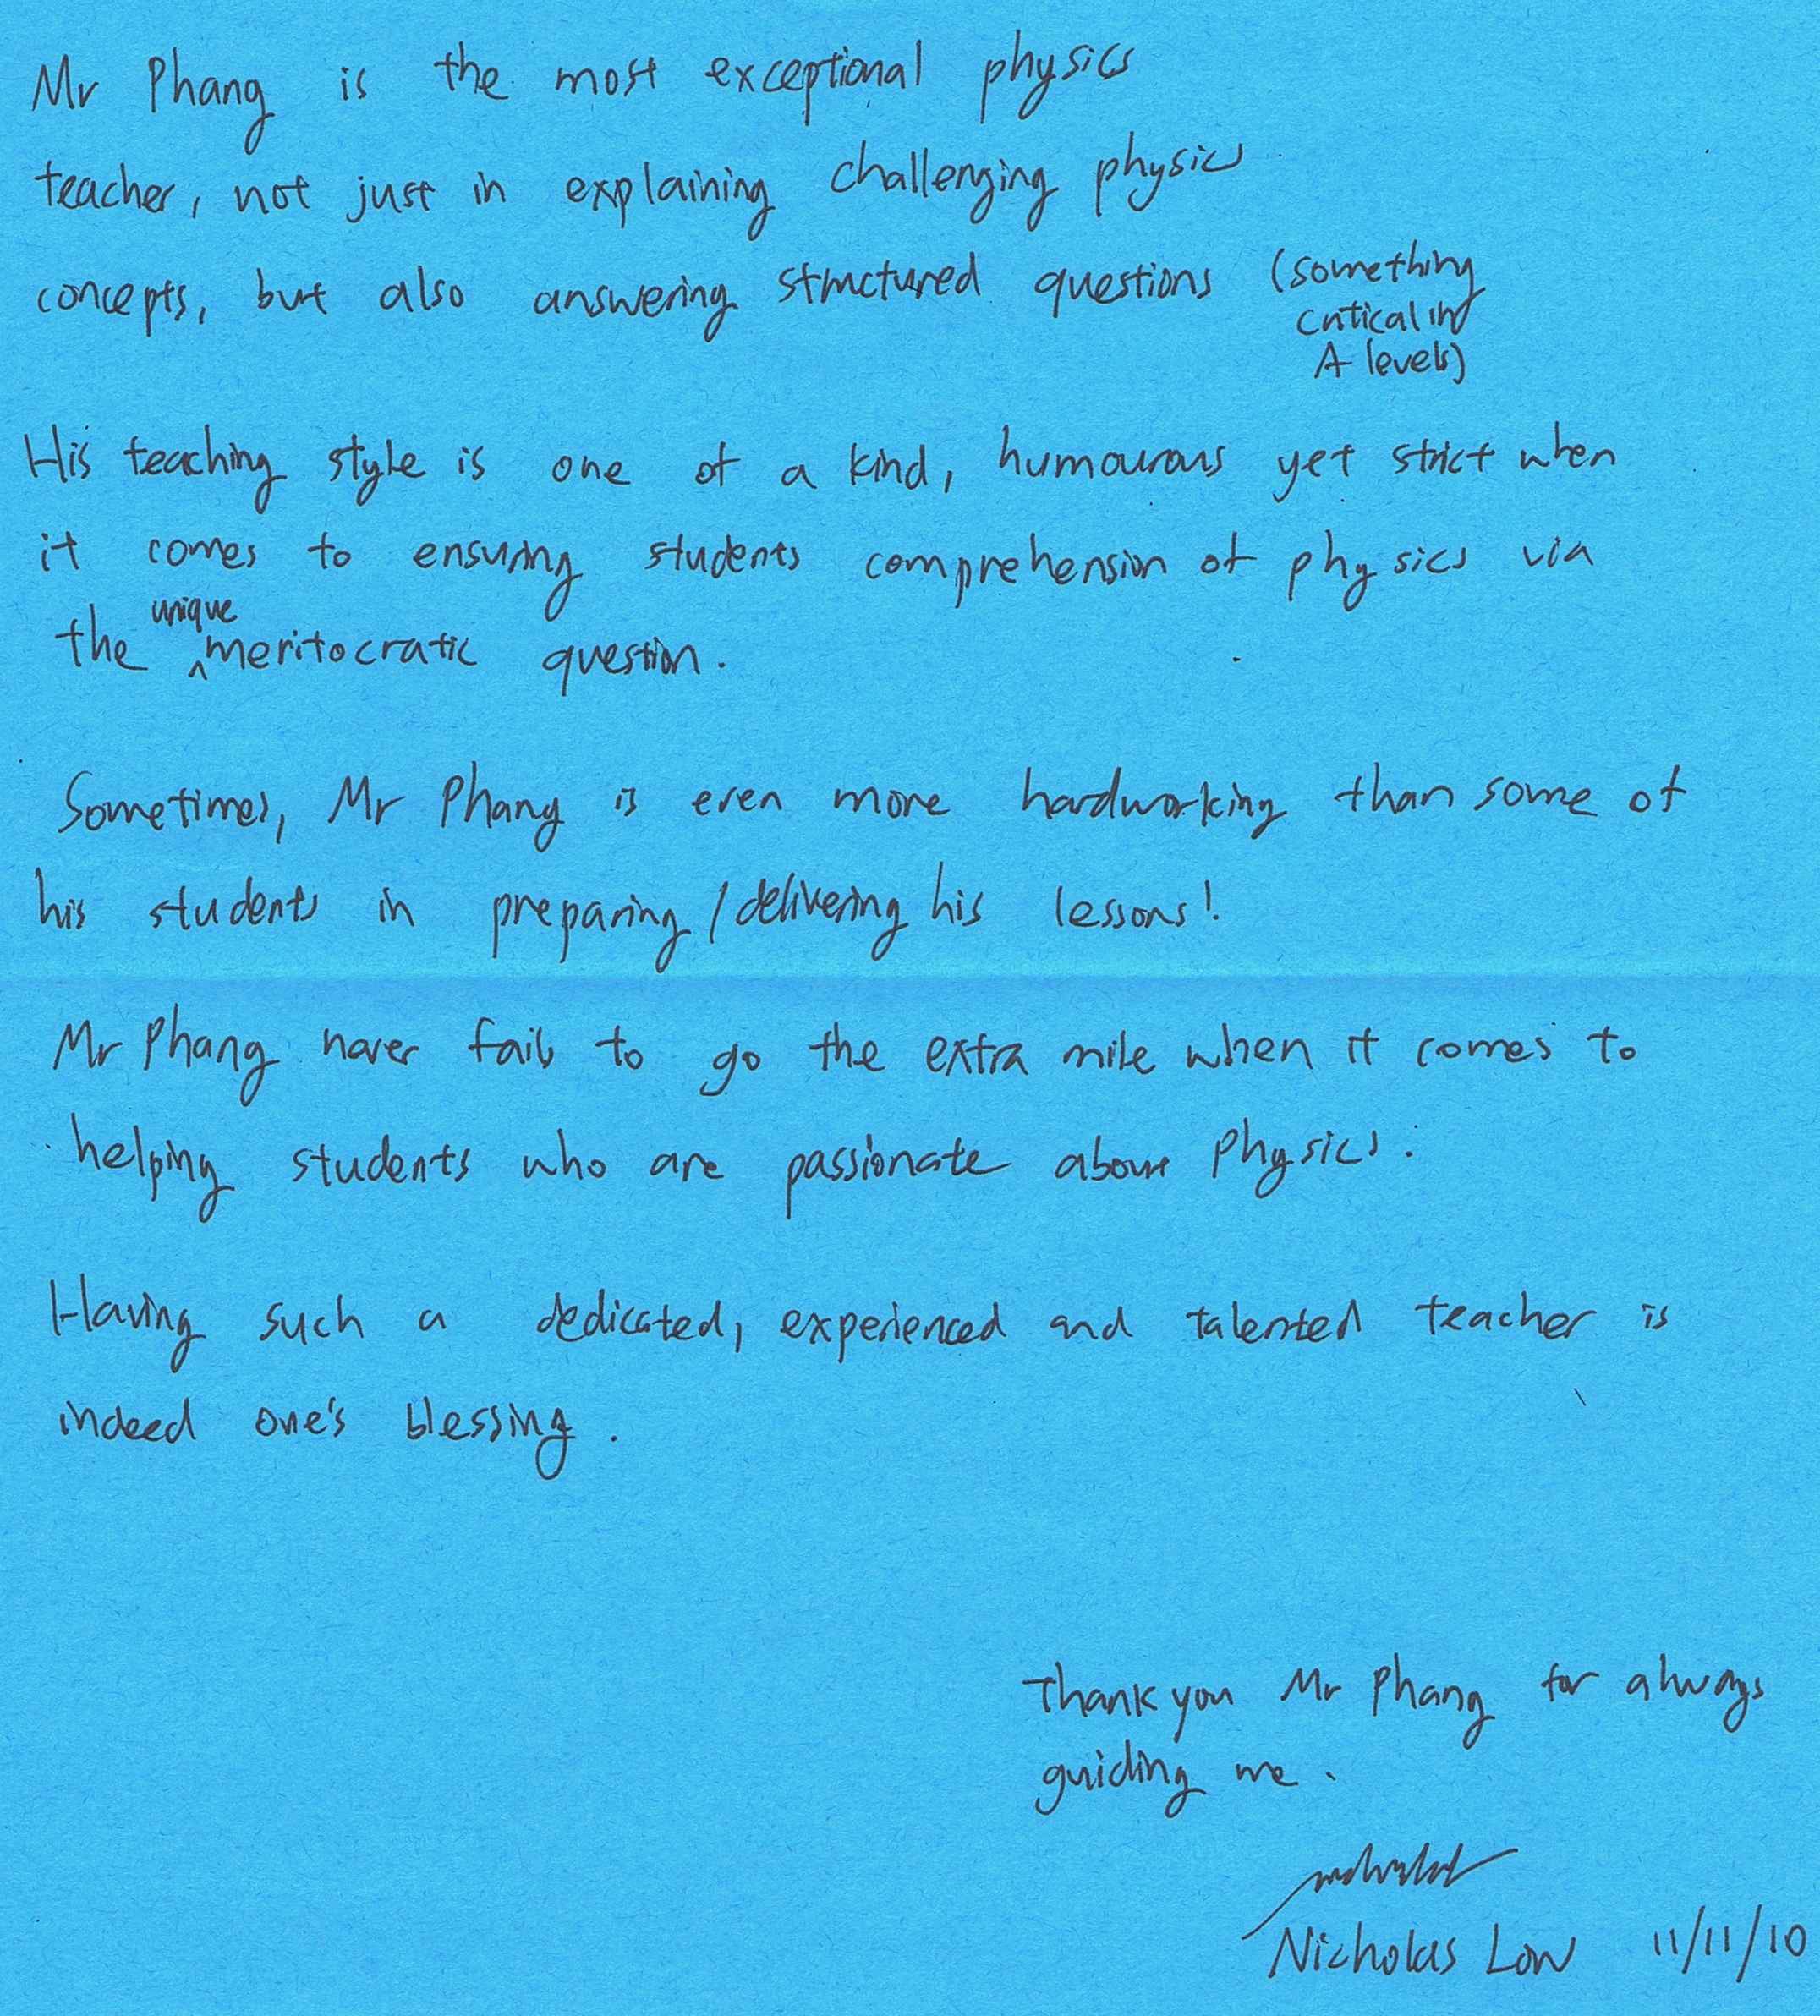 Mr Phang is the most exceptional physics
teacher, not just in explaining challenging physics
concepts, but also answering structured questions (something
critical in
A levels)
His teaching style is one of a kind, humourous yet strict when
it comes to ensuring students comprehension of physics via
the unique meritocratic question.
Sometimes, Mr Phang is even more hardworking than some of
his students in preparing/delivering his lessons!
Mr Phang never fails to go the extra mile when it comes to
helping students who are passionate about physics.
Having such a dedicated, experienced and talented teacher is
indeed one's blessing.
Thank you Mr Phang for always
guiding me.
Nicholas Low 11/11/10